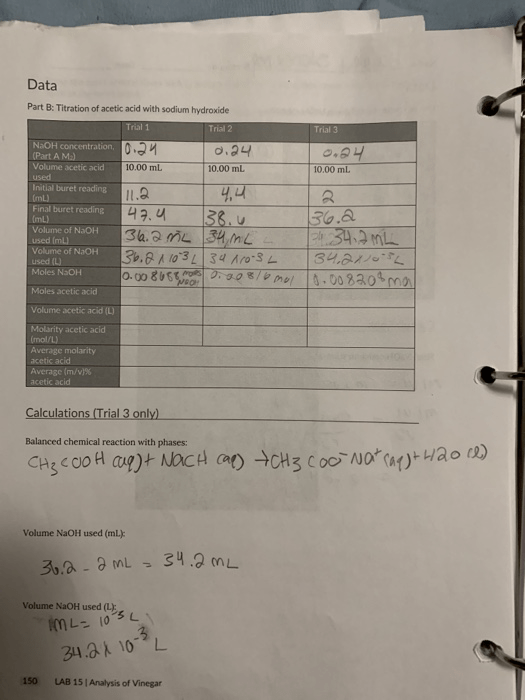 Data
Part B: Titration of acetic acid with sodium hydroxide
Trial 1 Trial 2 Trial 3
NaOH concentration (Part A M₂) 0.24 0.24 0.24
Volume acetic acid used 10.00 mL 10.00 mL 10.00 mL
Initial buret reading (mL) 11.2 4.4 2
Final buret reading (mL) 47.4 38.4 36.2
Volume of NaOH used (mL) 36.2 mL 34 mL 34.2 mL
Volume of NaOH used (L) 36.2 x 10⁻³ L 34 x 10⁻³ L 34.2 x 10⁻³ L
Moles NaOH 0.008688 moles NaOH 0.00816 mol 0.008208 mol
Moles acetic acid
Volume acetic acid (L)
Molarity acetic acid (mol/L)
Average molarity acetic acid
Average (m/v)% acetic acid
Calculations (Trial 3 only)
Balanced chemical reaction with phases:
CH₃COOH (aq) + NaOH (aq) → CH₃COO⁻Na⁺ (aq) + H₂O (l)
Volume NaOH used (mL):
36.2 - 2 mL = 34.2 mL
Volume NaOH used (L):
1mL = 10⁻³ L
34.2 x 10⁻³ L
150 LAB 15 | Analysis of Vinegar